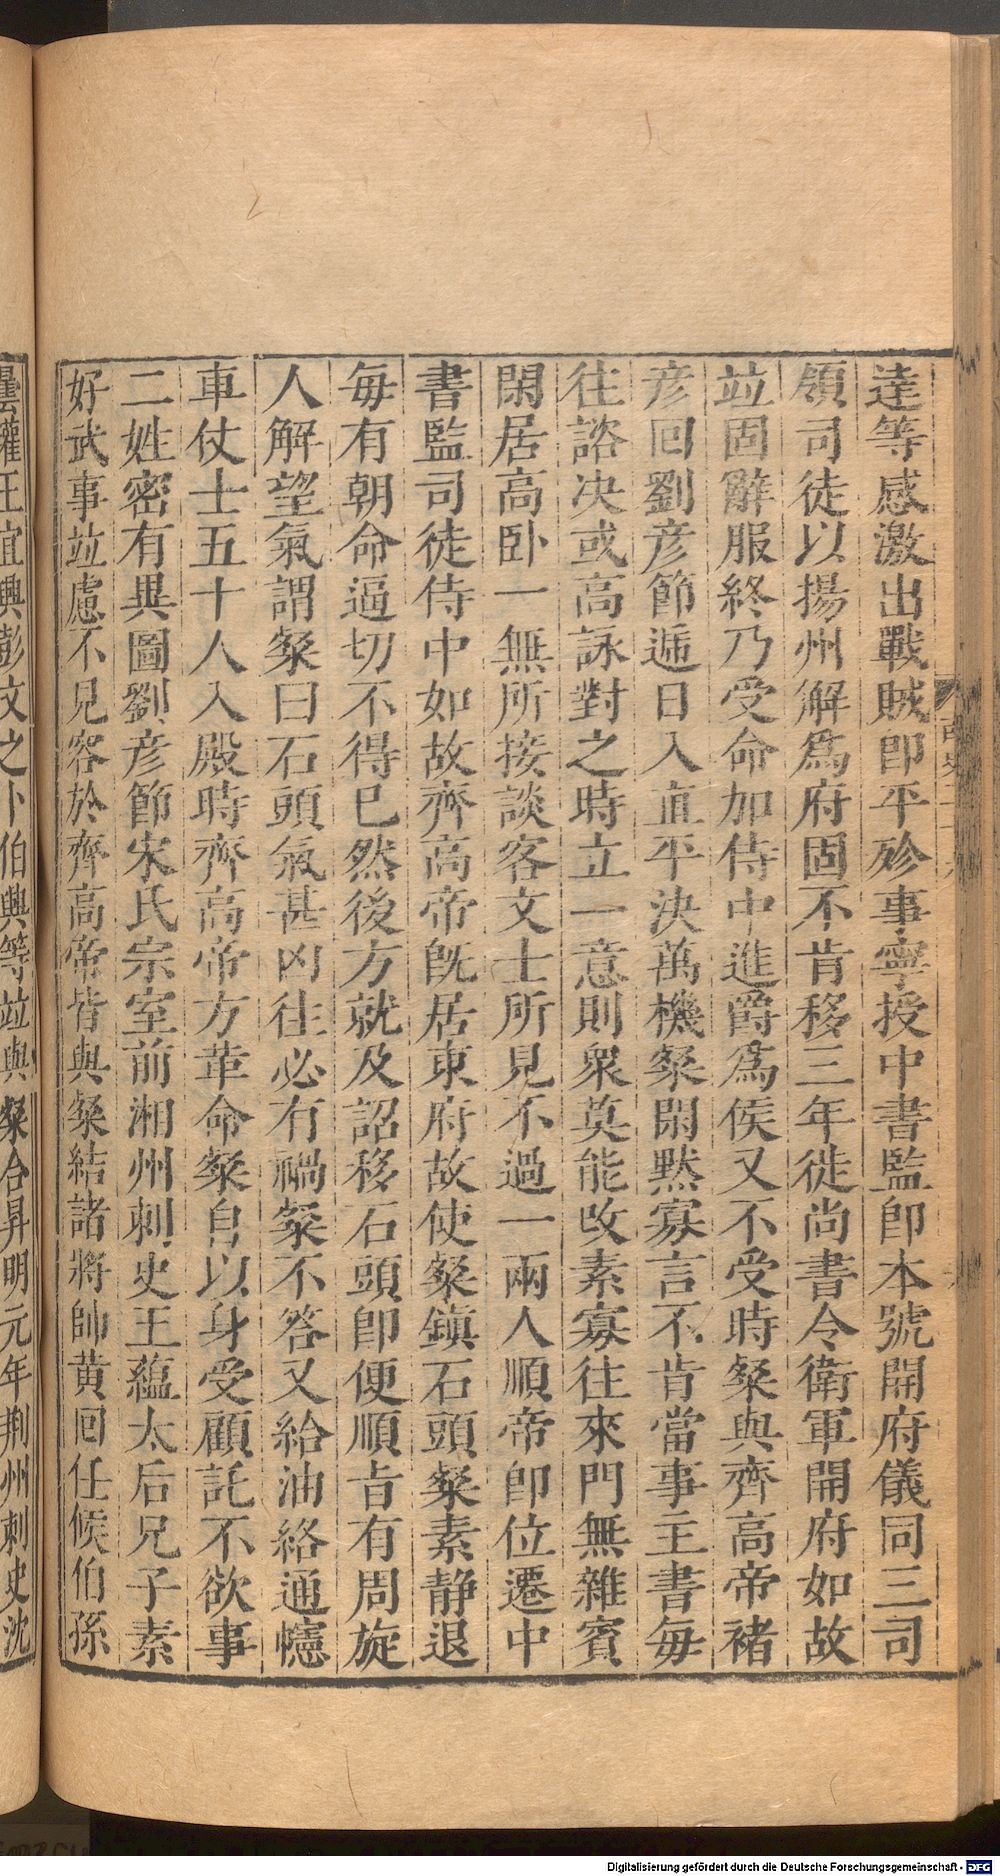 達等感激出戰賊即平殄事寧授中書監即本號開府儀同三司
領司徒以揚州解爲府固不肯移三年徙尚書令衛軍開府如故
竝固辭服終乃受命加侍中進爵爲侯又不受時粲與齊高帝褚
彦回劉彦節遞日入直平決萬機粲閑黙寡言不肯當事主書毎
往諮决或高詠對之時立一意則衆莫能改素寡往來門無雜賓
閑居高卧一無所接談客文士所見不過一兩人順帝即位遷中
書監司徒侍中如故齊高帝旣居東府故使粲鎮石頭粲素静退
毎有朝命逼切不得已然後方就及詔移石頭即便順旨有周旋
人解望氣謂粲曰石頭氣甚凶往必有禍粲不答又給油絡通幰
車仗士五十人入殿時齊高帝方革命粲自以身受顧託不欲事
二姓密有異圖劉彦節宋氏宗室前湘州刺史王藴太后兄子素
好武事竝慮不見容於齊高帝皆與粲結諸將帥黄回任候伯孫
曇瓘王宜興彭文之卜伯興等竝與粲合昇明元年荆州刺史沈
Digitalisierung gefördert durch die Deutsche Forschungsgemeinschaft - DFG